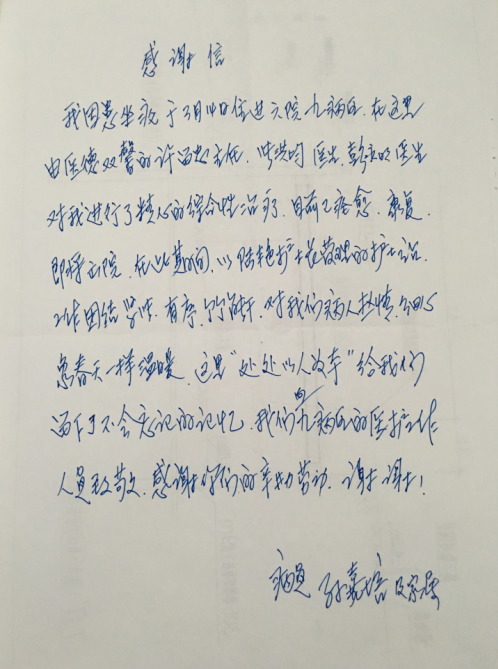 感谢信
我因患坐疮于3月14日住进六院九病区，在这里
由医德双馨的许 主任、 医生、彭 医生
对我进行了精心的综合性治疗，目前已痊愈、康复，
即将出院，在此期间，以陆艳护士长管理的护士站，
工作团结紧张、有序、 ，对我们病人热情，
象春天一样温暖，这里“处处以人为本”给我们
留下了不会忘记的记忆，我们向九病区的医护工作
人员致敬，感谢你们的辛勤劳动，谢谢谢谢！
病员 孙嘉培及家属